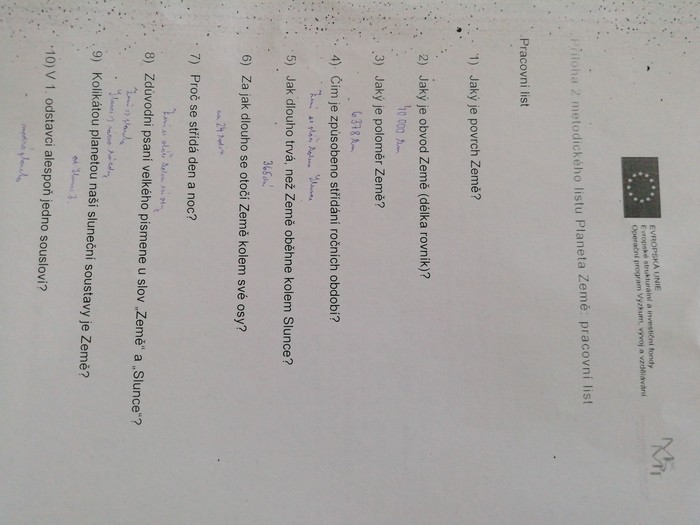 EVROPSKÁ UNIE
Evropské strukturální a investiční fondy
Operační program Výzkum, vývoj a vzdělávání
Příloha 2 metodického listu Planeta Země: pracovní list
Pracovní list
1) Jaký je povrch Země?
2) Jaký je obvod Země (délka rovník)?
40 000 km
3) Jaký je poloměr Země?
6378 km
4) Čím je způsobeno střídání ročních období?
5) Jak dlouho trvá, než Země oběhne kolem Slunce?
365 dní
6) Za jak dlouho se otočí Země kolem své osy?
za 24 hodin
7) Proč se střídá den a noc?
8) Zdůvodni psaní velkého písmene u slov „Země“ a „Slunce“?
9) Kolikátou planetou naší sluneční soustavy je Země?
od Slunce 3.
10) V 1. odstavci alespoň jedno sousloví?